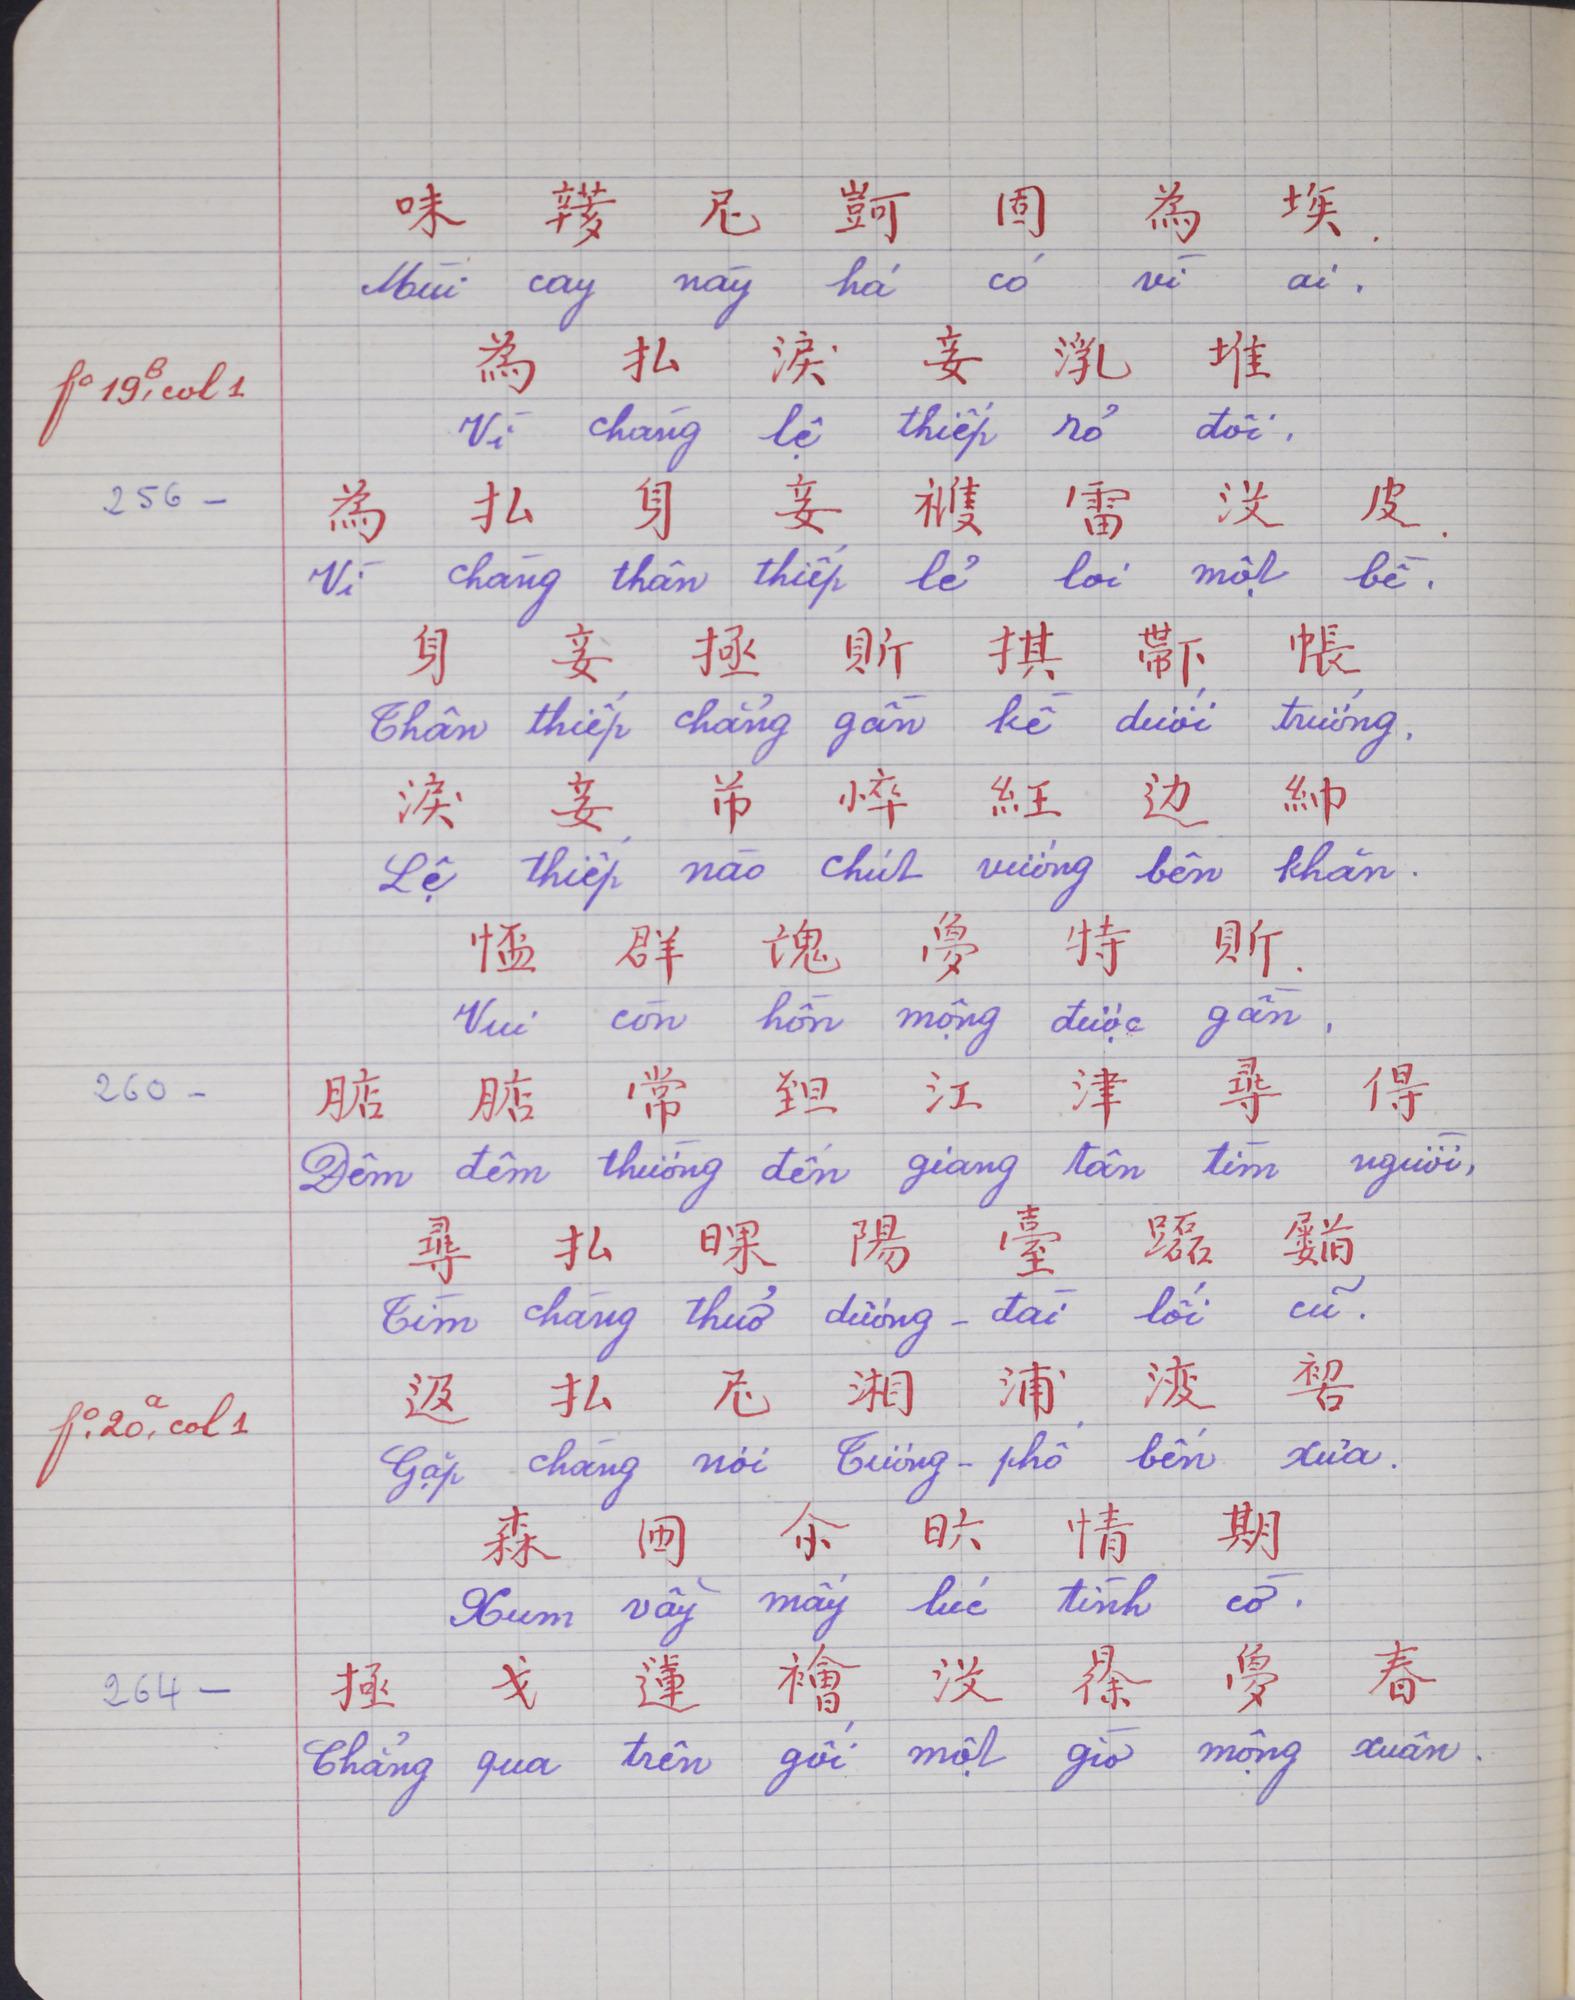 味 𨐮 尼 𧯶 固 為 埃.
Mùi cay này há có vì ai.
fº 19, B col 1
為 払 淚 妾 堆
Vì chàng lệ thiếp rỏ đôi.
256 — 為 払 身 妾 𥘶 雷 没 皮.
Vì chàng thân thiếp lẻ loi một bề.
身 妾 拯 𧵆 掑 𠁑 帳
Thân thiếp chẳng gần kề dưới trướng,
淚 妾 芇 悴 紝 边 㡊
Lệ thiếp nào chút vướng bên khăn.
𢝙 群 魂 夢 特 𧵆.
Vui còn hồn mộng được gần,
260 — 𣎀 𣎀 常 𦤾 江 津 尋 得
Đêm đêm thường đến giang tân tìm người,
尋 払 𣇞 陽 臺 𨁡
Tìm chàng thuở dương - đài lối cũ.
fº. 20, a col 1
返 払 尼 湘 浦 渡 𠸗
Gặp chàng nơi Tương - phố bến xưa.
森 囬 余 𣅶 情 期
Xum vầy mấy lúc tình cờ.
264 — 拯 戈 蓮 襘 没 𣇞 夢 春
Chẳng qua trên gối một giờ mộng xuân.